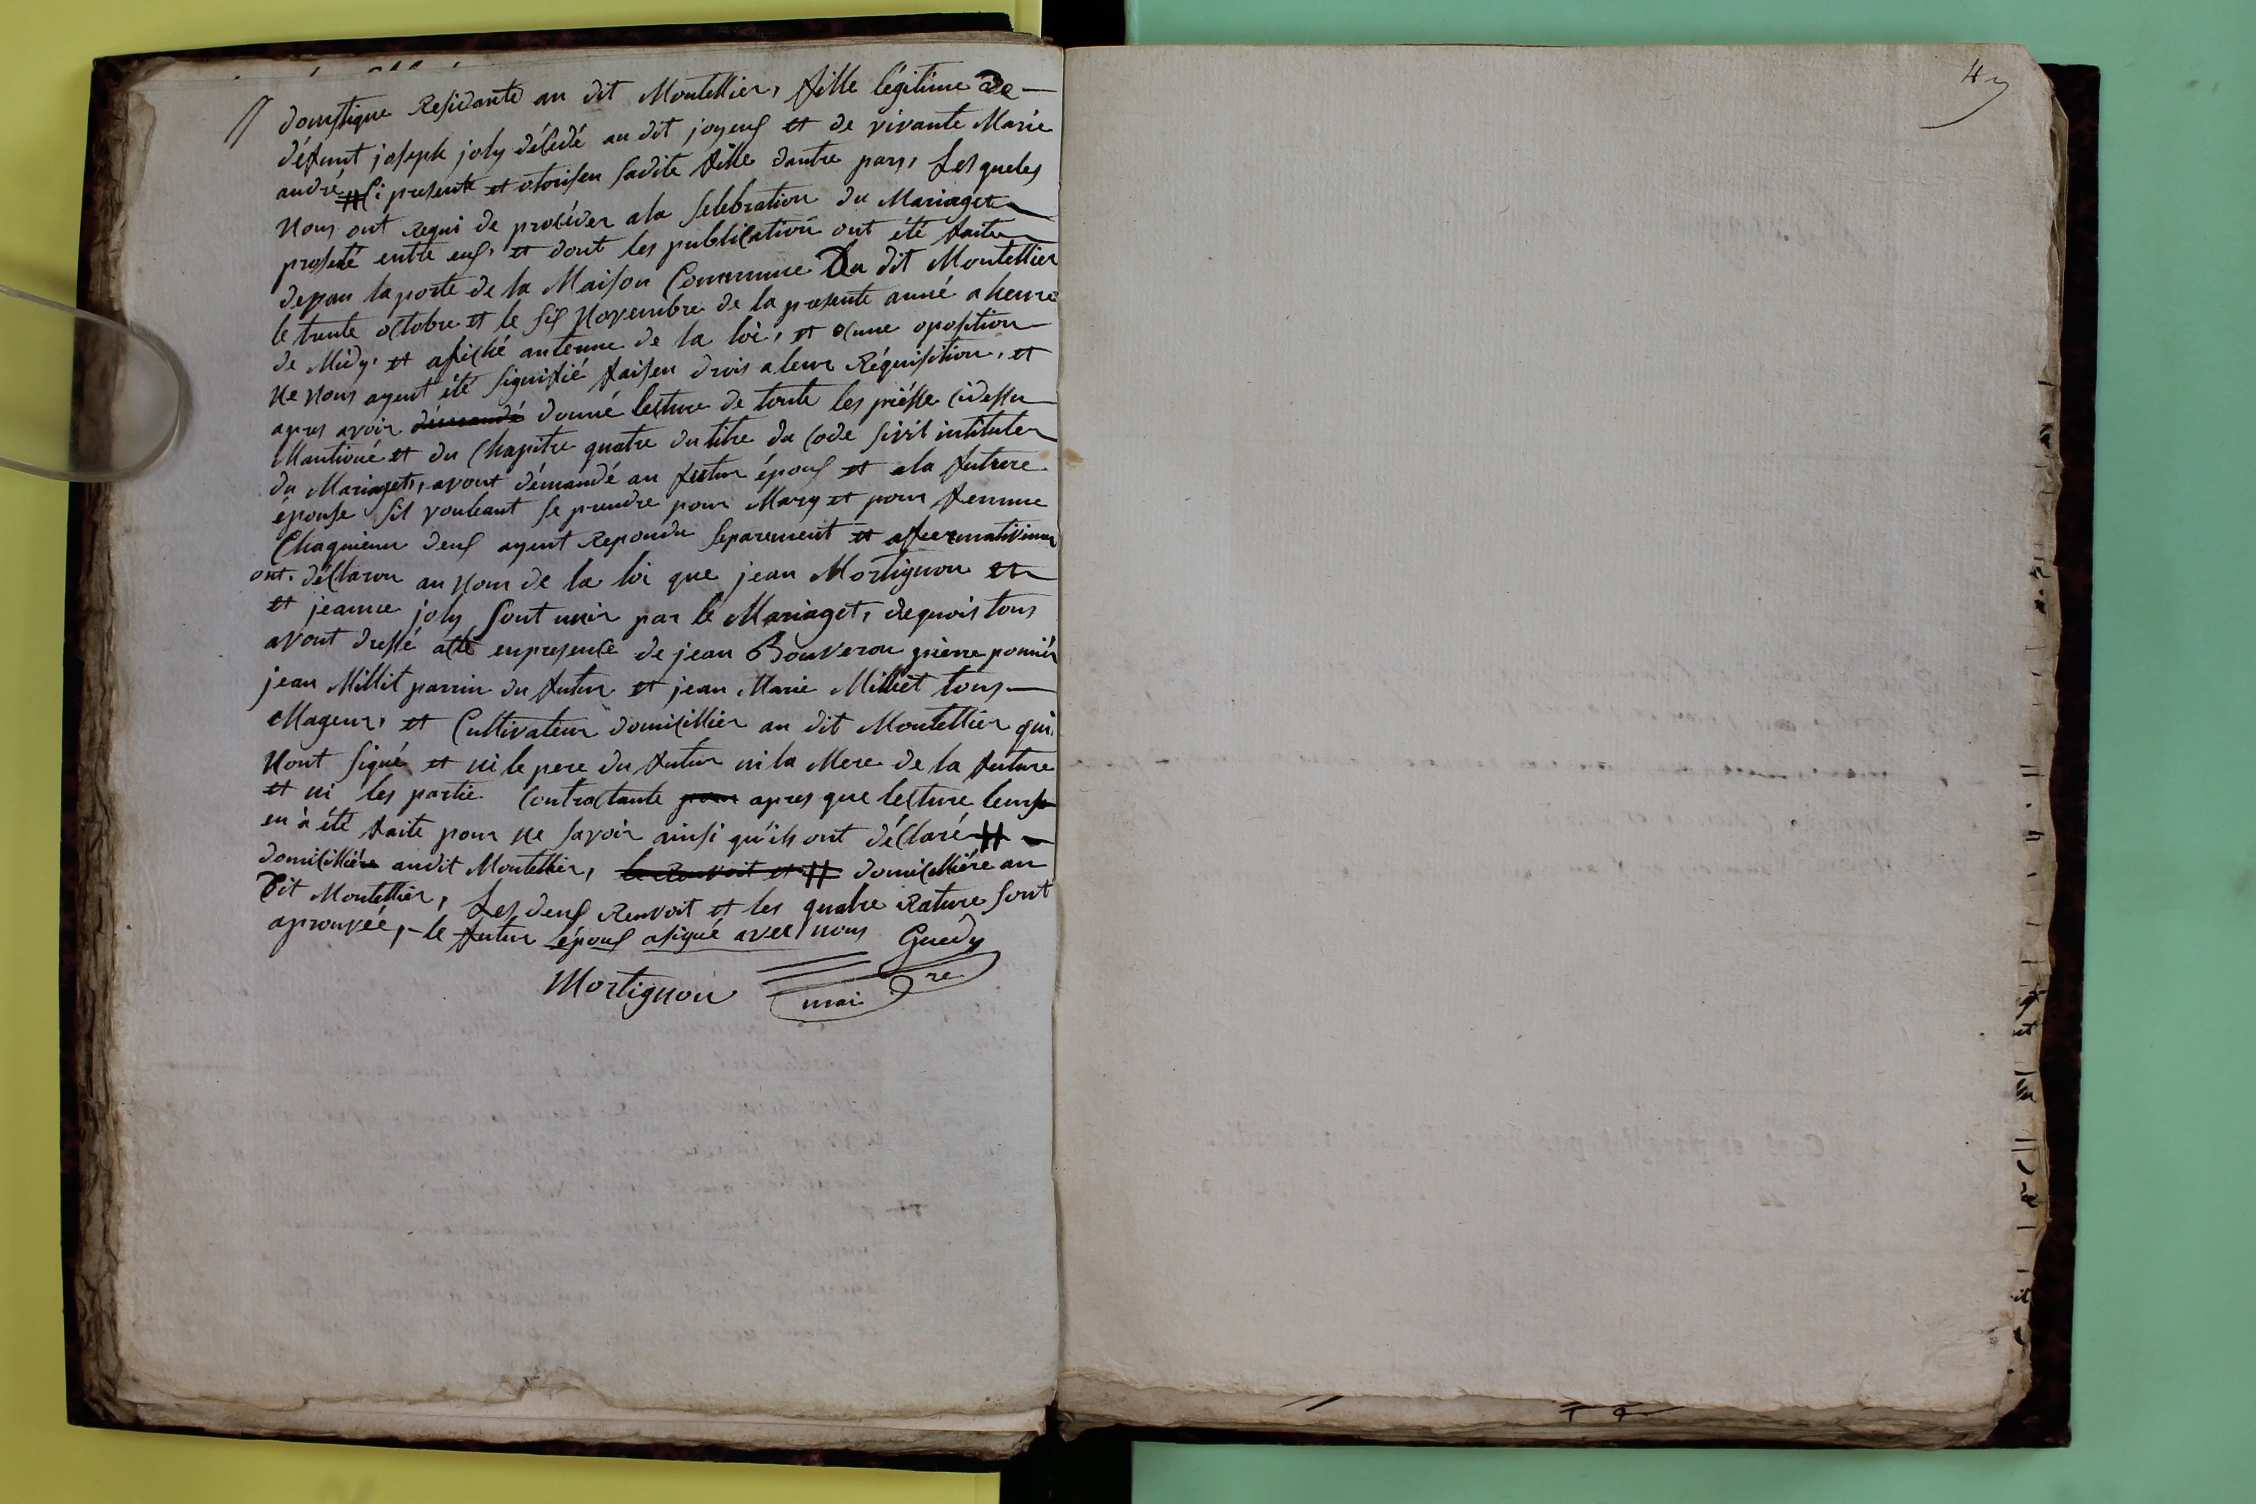 4
domstique Residante au dit Montellier, fille légitime de
défunt joseph joly décédé au dit joyeux et de vivante Marie
andré # Ci presente et otorisen sadite fille dautre pars, Les queles
Nous ont requi de procéder a la selebration du Mariaget
projeté entre eux, et dont les publication ont été faite
depvan la porte de la Maison Commune Du dit Montellier
le trente octobre et le six Novembre de la presente anné a heure
de Midy, et afiché anterme de la loi, et ocune oposition
Ne Nous ayent été signifié faisen drois a leur Réquisition, et
apres avoir démandé donné lecture de toute les piésse cidessu
Mantioné et du Chapitre quatre du titre du Code sivil intituler
du Mariaget, avont démandé au futur époux et a la future
épouse sil vouleant se prendre pour Mary et pour femme
Chaquienn deux ayent Repondu separement et affermativiman
ont. déClaron au Nom de la loi que jean Mortignon et
et jeanne joly sont unir par le Mariaget, dequois tous
avont dressé acte enpresence de jean Bouveron pierre ponnier
jean Millit parrin du futur et jean Marie Milliet tous
Mageur, et Cultivateur domicillier au dit Montellier qui
Nont signé et ni le pere du futur ni la Mere de la future
et ni les partie Contractante pour apres que lecture leurs
en à été faite pour ne savoir ainsi qu'ils ont déClaré #
domicilliére audit Montellier, le Renvoit et # domicilliére au
dit Montellier, Les deux Renvoit et les quatre Rature sont
aprouvéé, le futur époux asigué avec nous Guedy
Mortignon maire